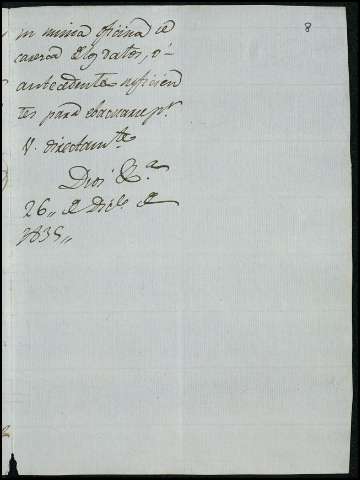 8
misma oficina se
carezca de los datos, ó
antecedentes suficien
tes para evacuarse pr.
V. directamte.
Dios &a.
26,, de Dice. de
1835,,